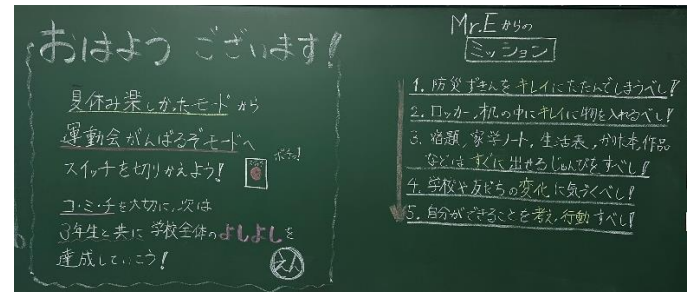 おはよう ございます!
夏休み楽しかったモード から
運動会がんばるぞモードへ
スイッチを切りかえよう!
ポチッ!
コ・ミ・チを大切に、次は
3年生と共に 学校全体のよしよしを
達成していこう!
Mr.Eからの
ミッション
1. 防災ずきんをキレイにたたんでしまうべし!
2. ロッカー、机の中にキレイに物を入れるべし!
3. 宿題、家学ノート、生活表、かり本、作品
などはすぐに出せるじゅんびをすべし!
4. 学校や友だちの変化に気づくべし!
5. 自分ができることを考え、行動すべし!